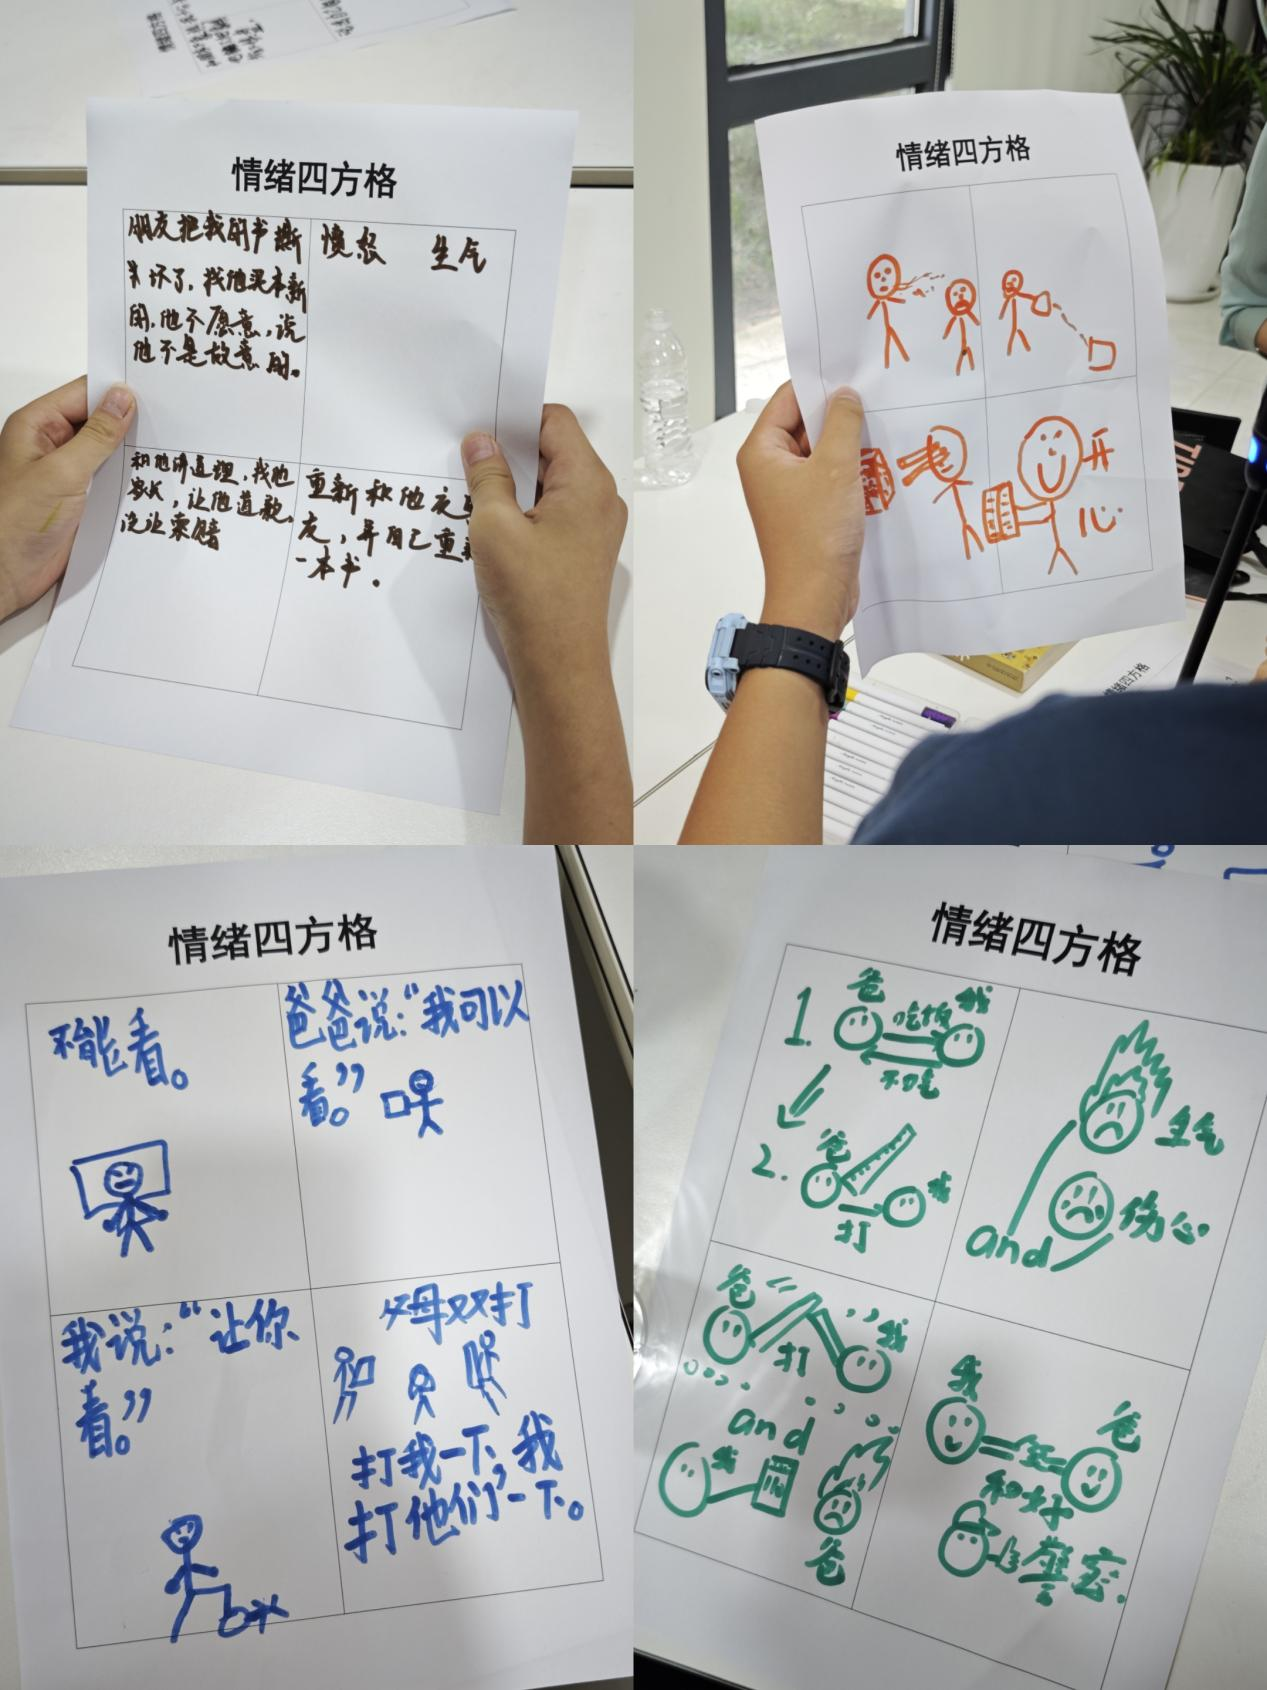 情绪四方格
朋友把我的书撕
坏了,找他买本新
的,他不愿意,说
他不是故意的。
愤怒 生气
和他讲道理,找他
家长,让他道歉,
重新和他交
友,并自己重
一本书。
情绪四方格
开
心
情绪四方格
不能看。
爸爸说:“我可以
看。”
我说:“让你
看。”
父母双打
打我一下,我
打他们一下。
情绪四方格
1.
爸
我
吃饭
不吃
2.
爸
我
打
生气
and
伤心
爸
我
打
and
我
爸
我
爸
和好
警察.
情绪四方格